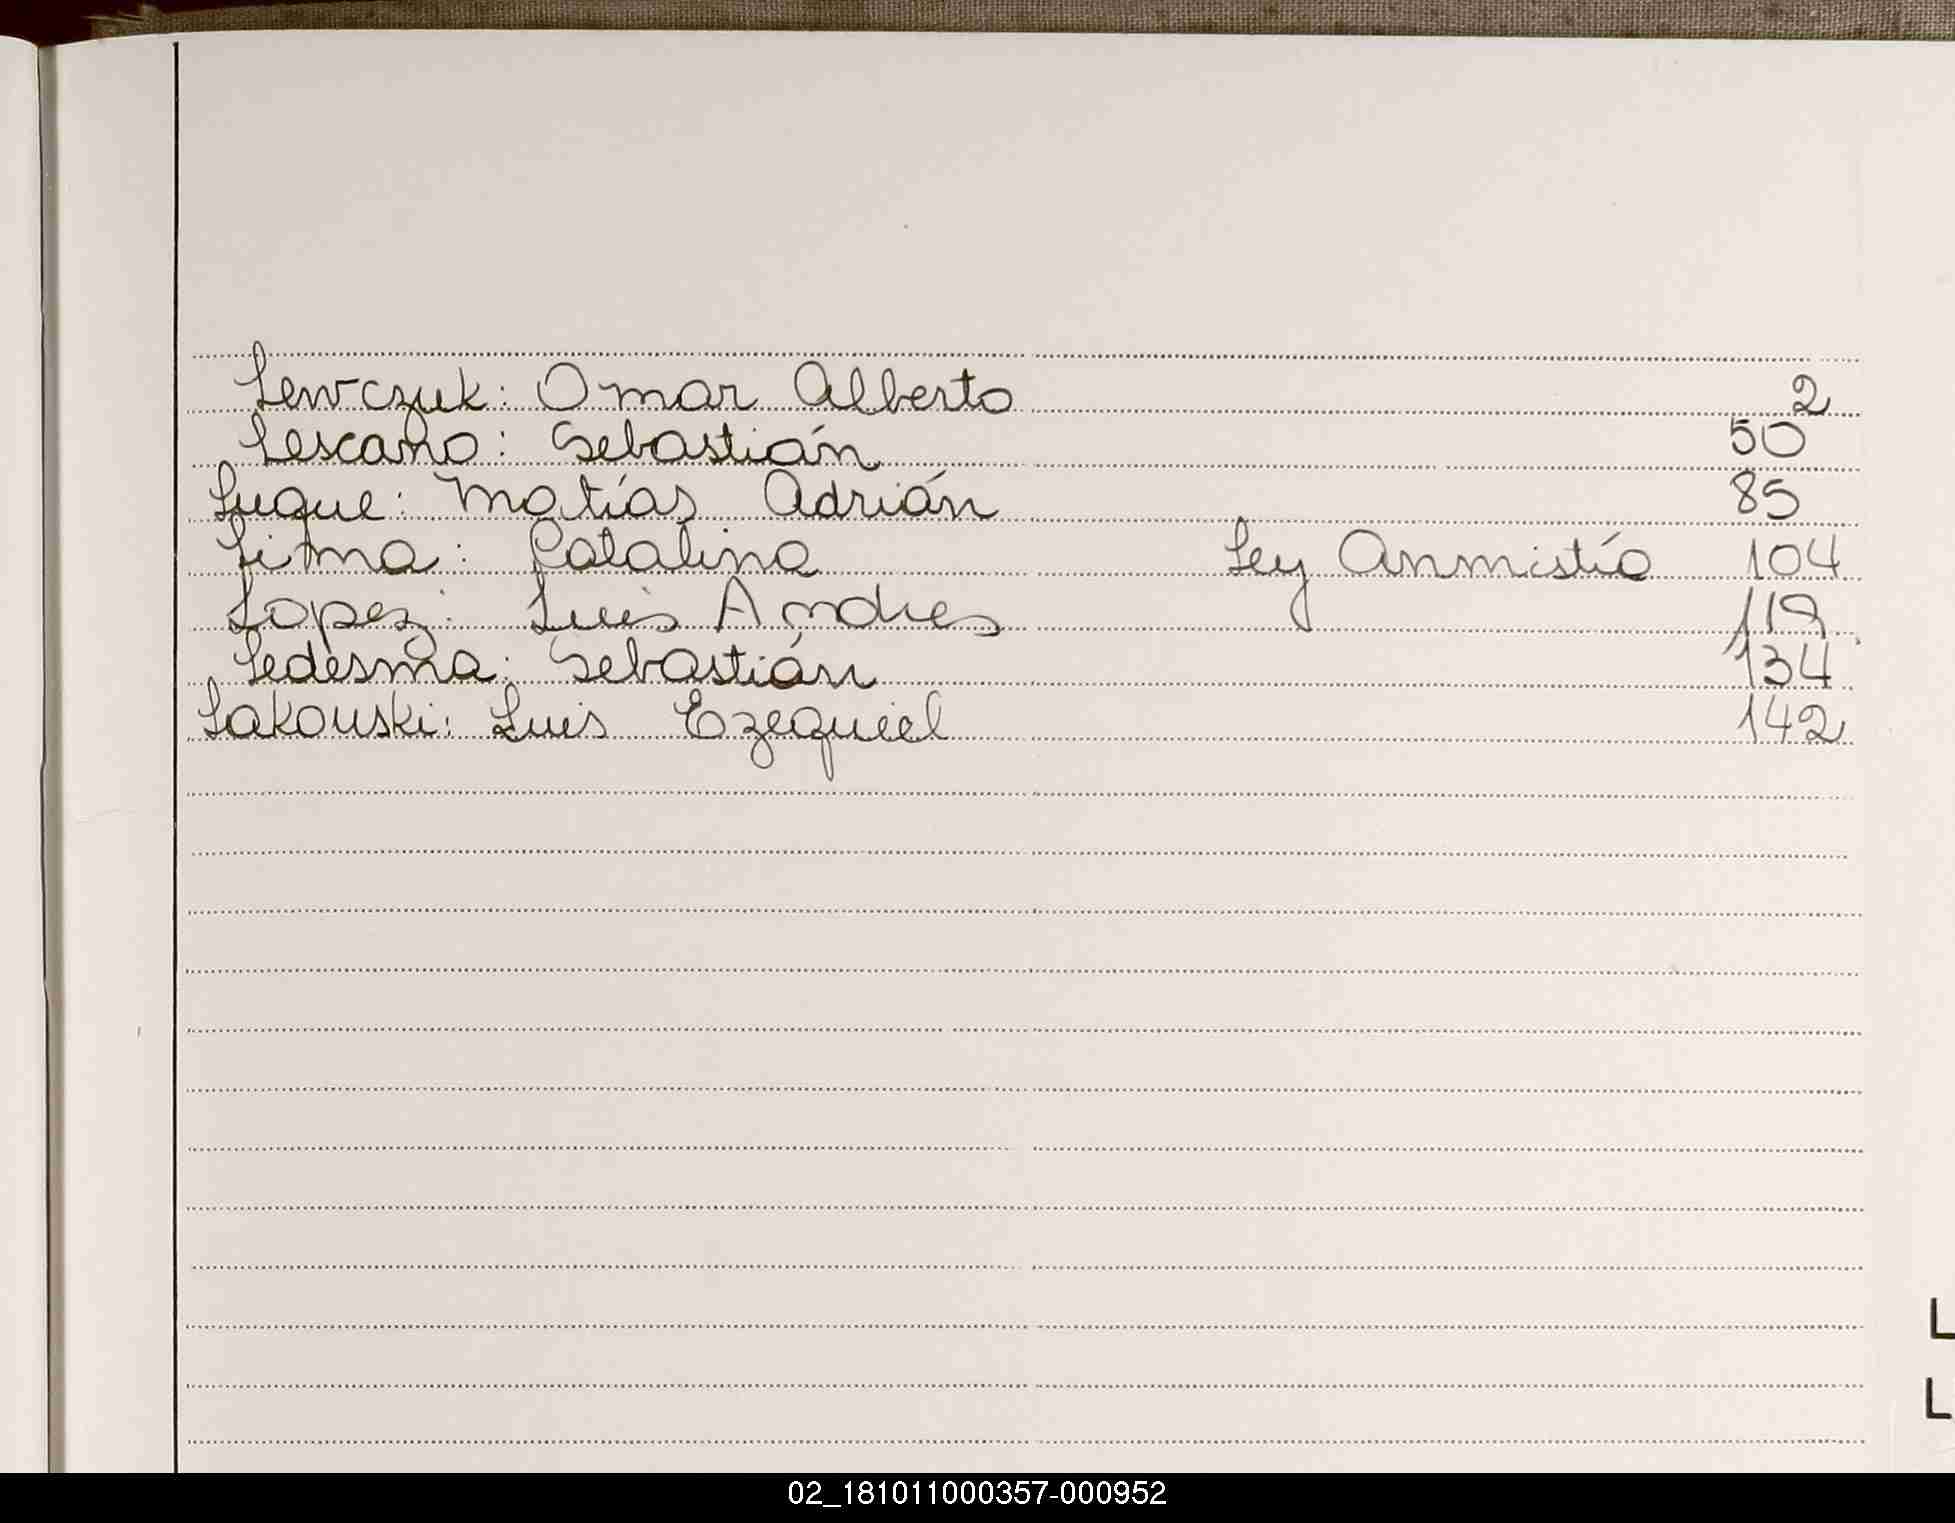 Lewczuk: Omar Alberto 2
Lescano: Sebastián 50
Luque: Matías Adrián 85
Litma: Catalina Ley Anmistía 104
Lopez: Luis Andres 119
Ledesma: Sebastián 134
Lakouski: Luis Ezequiel 142
L
L
02_181011000357-000952